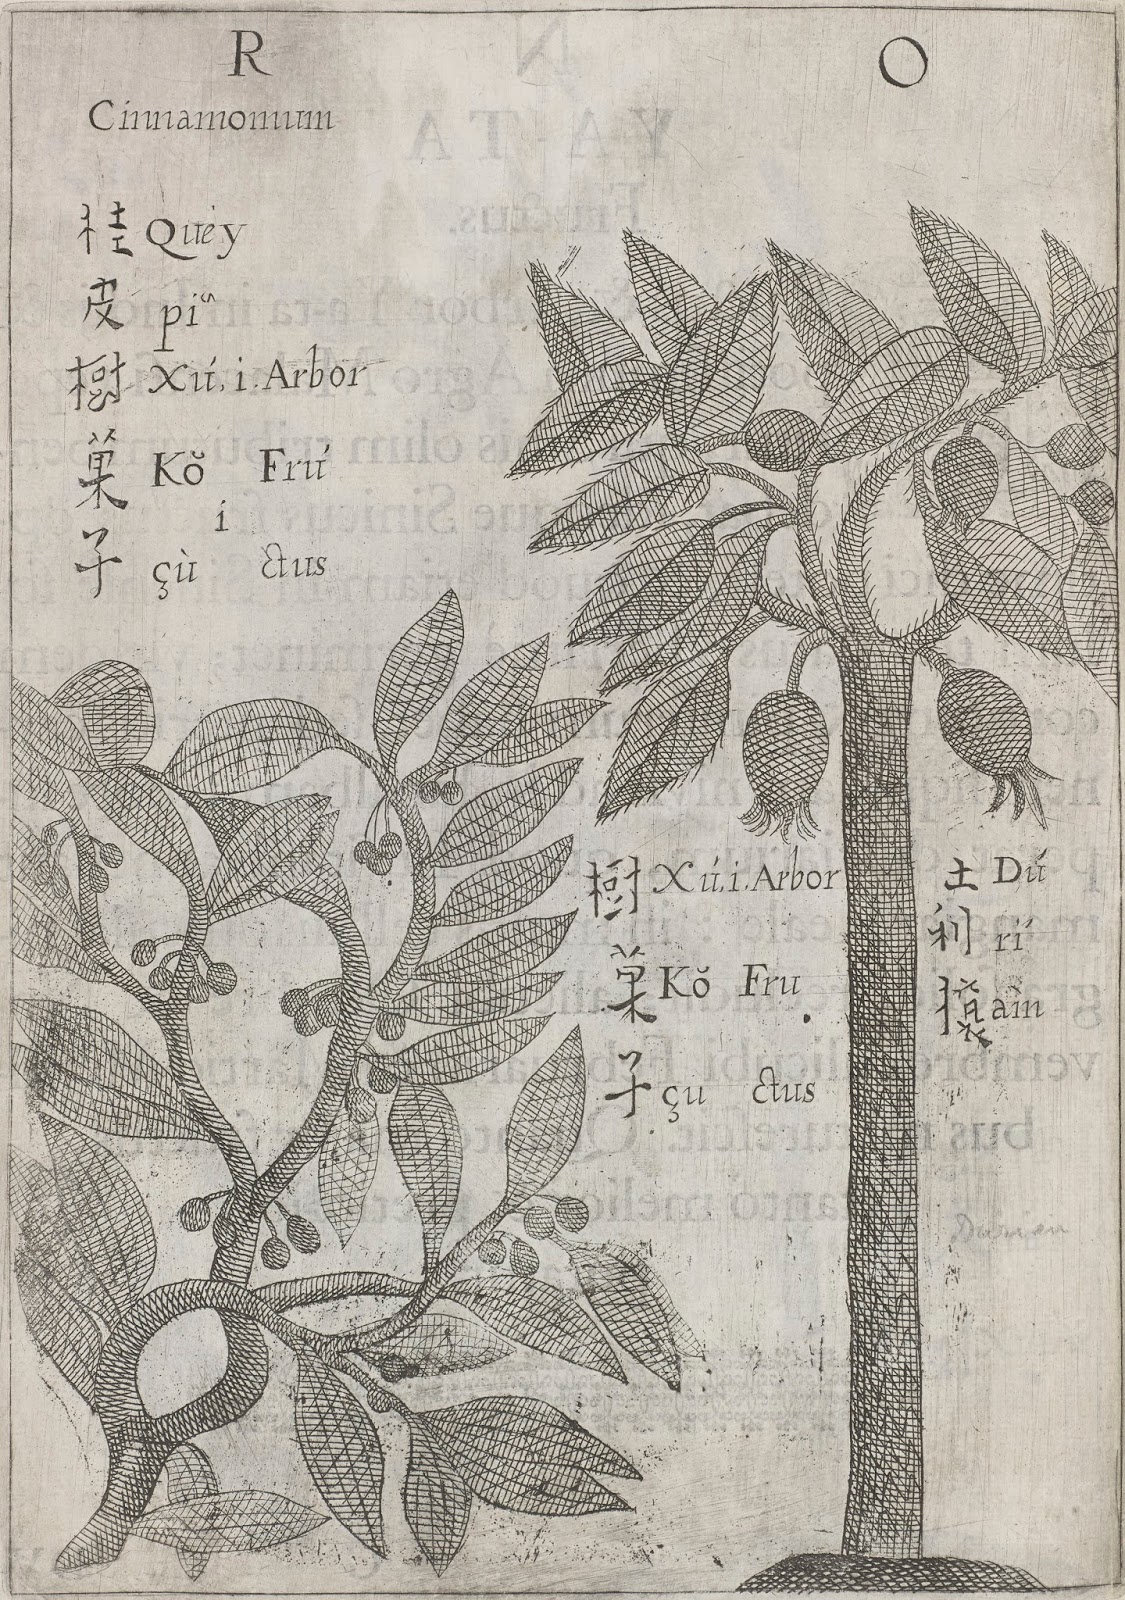 R
Cinnamomum
桂 Quéy
皮 pi
樹 Xú. i. Arbor
菓 Kŏ Frú
i
子 çù ctus
O
樹 Xú. i. Arbor
菓 Kŏ Fru
子 çu ctus
土 Dú
利 rí
ain
Durien